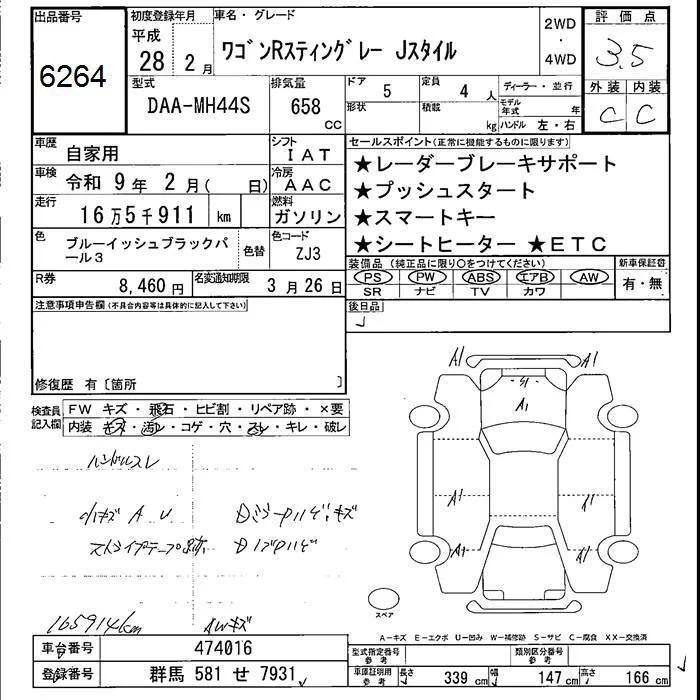 出品番号 初度登録年月 車名・グレード 評価点
6264 平成 28年 2月 ワゴンRスティングレー Jスタイル 2WD・4WD 3.5
型式 排気量 ドア 5 定員 4人 ディーラー・並行 外装 内装
DAA-MH44S 658 CC 形状 積載 kg モデル年式 年 ハンドル 左・右 C C
車歴 自家用 シフト IAT セールスポイント(正常に機能するものに限ります)
車検 令和 9年 2月( 日) 冷房 AAC ★レーダーブレーキサポート
走行 16万5千911 km 燃料 ガソリン ★プッシュスタート
★スマートキー
色 ブルーイッシュブラックパール3 色替 色コード ZJ3 ★シートヒーター ★ETC
装備品(純正品に限り○をつけてください) 新車保証書
PS PW ABS エアB AW 有・無
SR ナビ TV カワ
R券 8,460円 名変通知期限 3月26日
後日品
注意事項申告欄(不具合内容等は具体的に記入して下さい)
修復歴 有〔箇所 〕
検査員記入欄 FW キズ・飛石・ヒビ割・リペア跡・×要
内装 キズ・汚レ・コゲ・穴・スレ・キレ・破レ
ハンドルスレ
小キズ A U
ストライプテープ跡
165914km AWキズ
A1 A1
A1
A1 A1
A1 A1
スペア
A-キズ E-エクボ U-凹み W-補修跡 S-サビ C-腐食 XX-交換済
車台番号 474016 型式指定番号 参考 類別区分番号 参考
登録番号 群馬 581 せ 7931 車庫証明用 参考 長さ 339 cm 幅 147 cm 高さ 166 cm